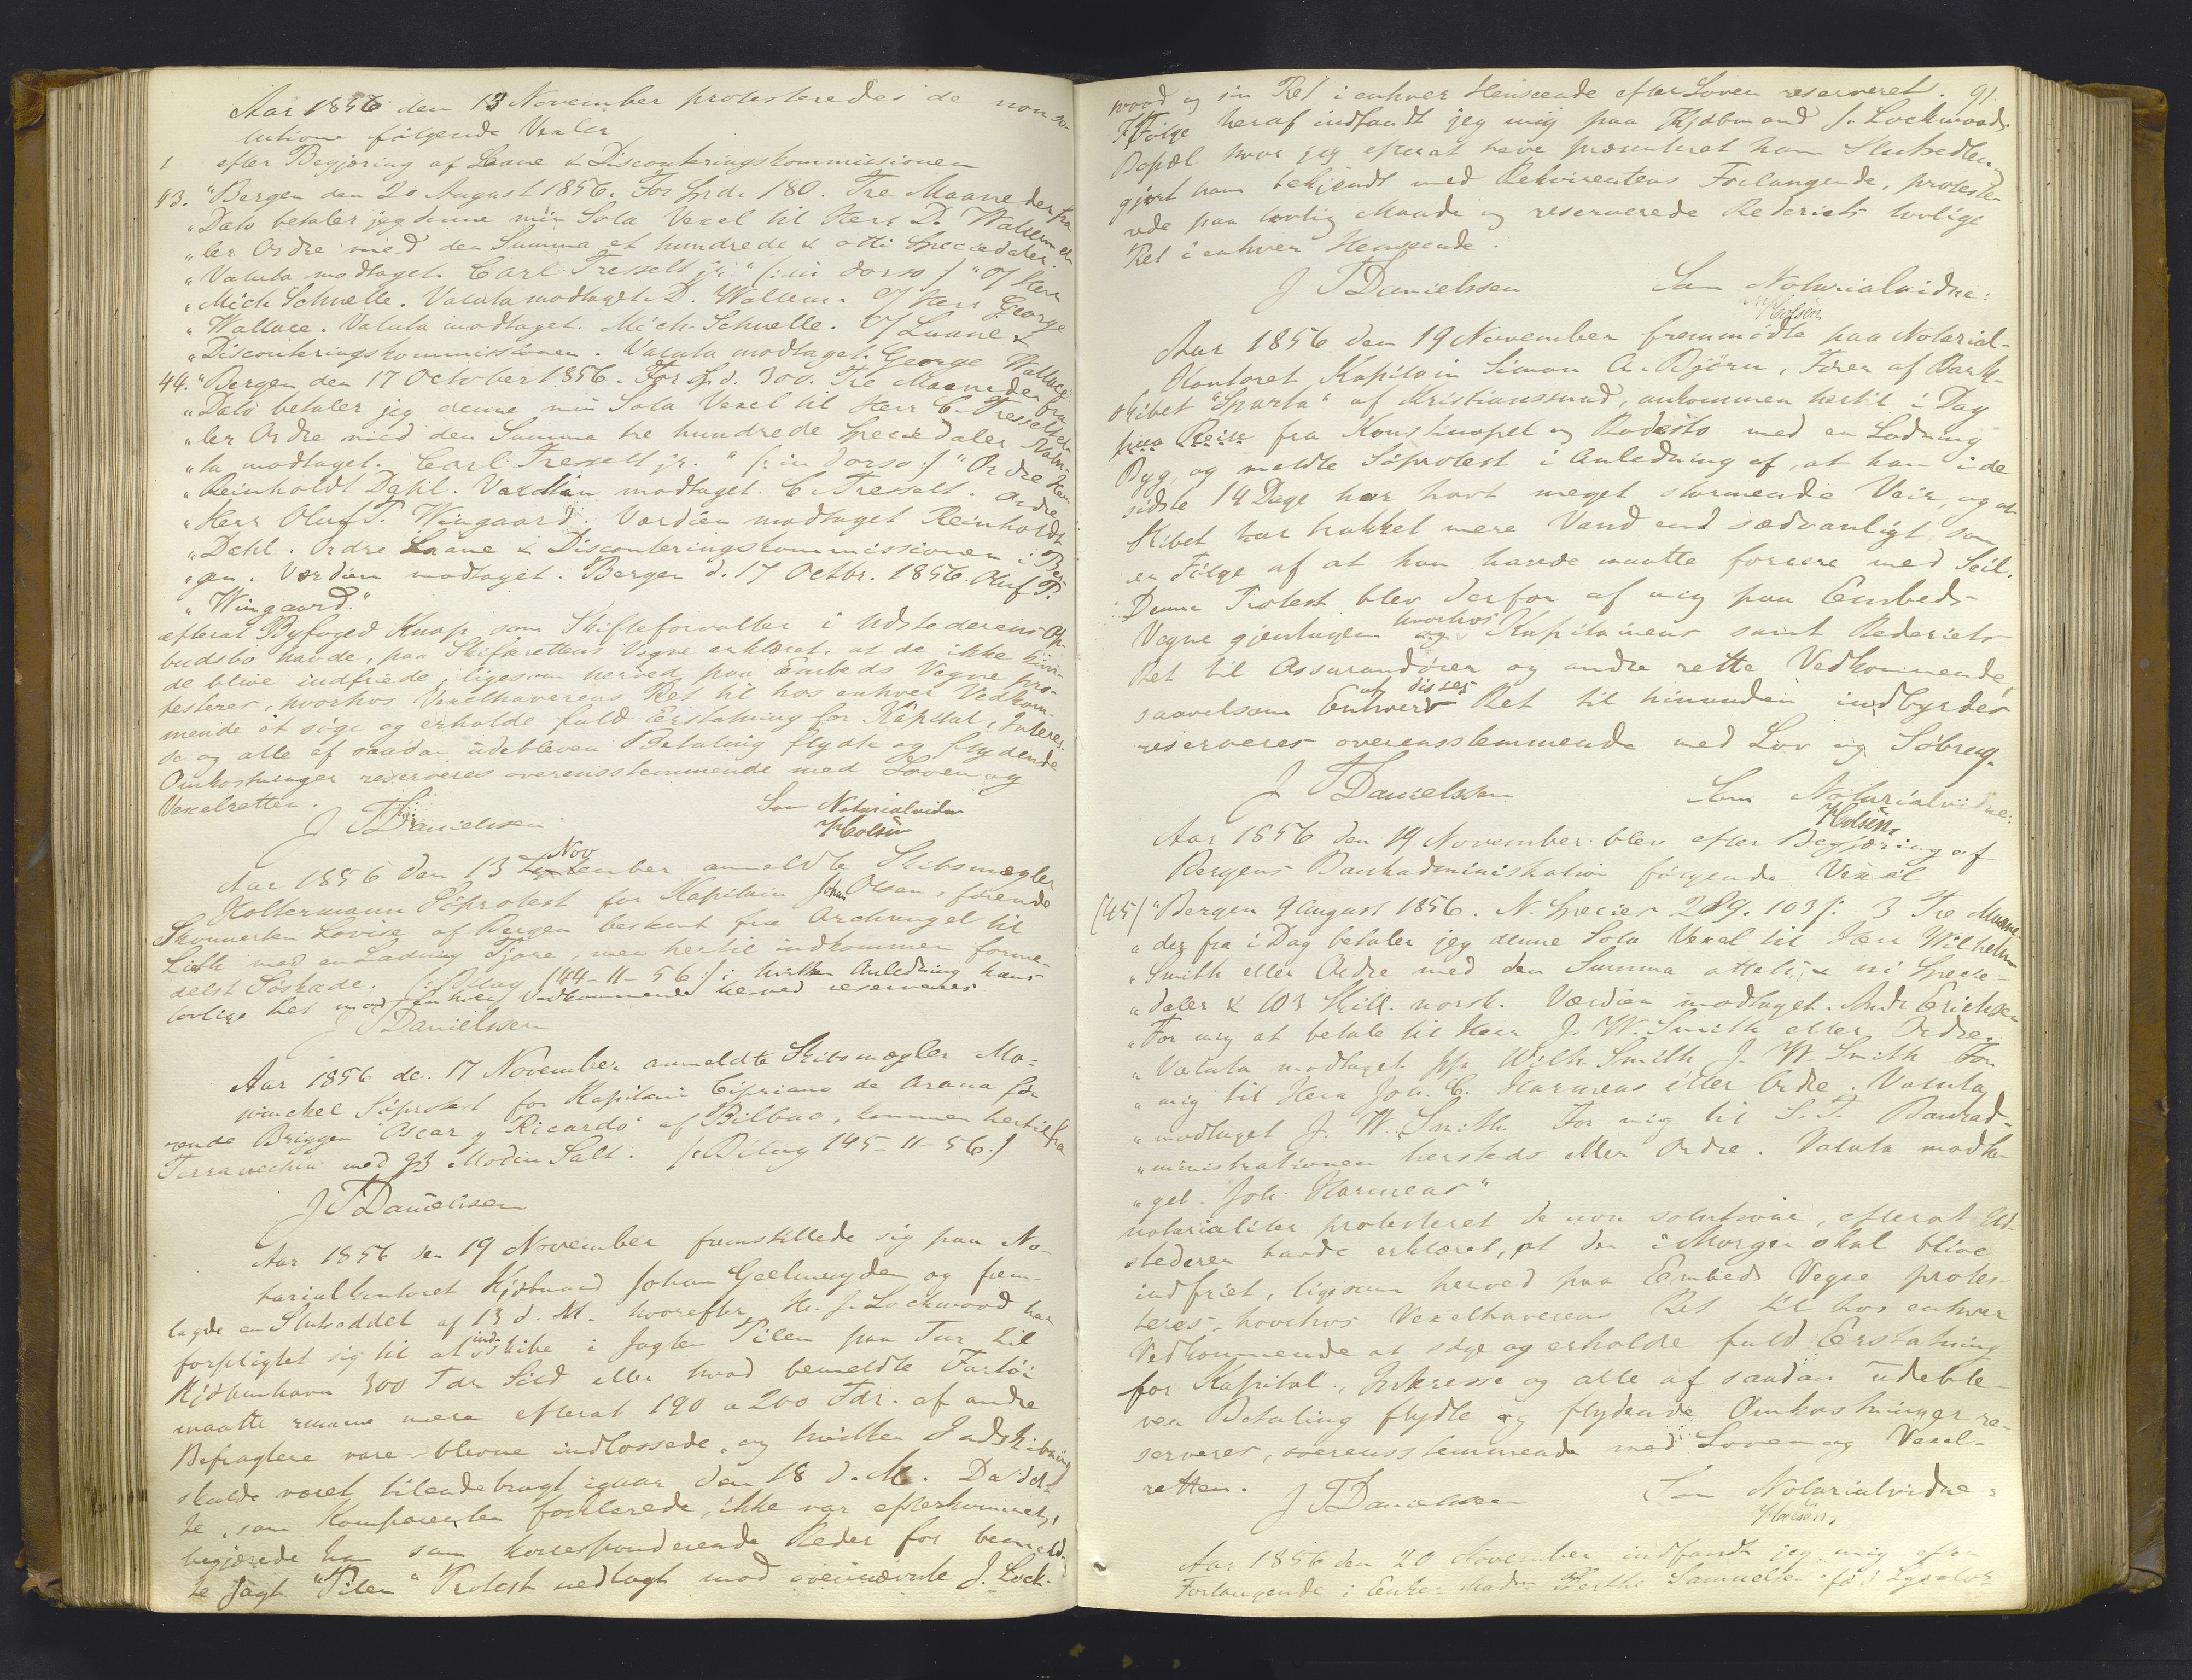 Aar 1856 den 13 November protesteredes de non so-
lutione følgende Vexler
1 efter Begjæring af Laane & Disconteringskommissionen
43. "Bergen den 20 August 1856. For Spd. 180. Tre Maaneder fra
"Dato betaler jeg denne min Sola Vexel til Herr D. Wallem el-
"ler Ordre med den Summa et hundrede & otti Speciedaler.
"Valuta modtaget. Carl Tresselt jr." (: in dorso :) "O/ Herr
"Mich Schnelle. Valuta modtaget. D. Wallem. O/ Herr George
"Wallace. Valuta modtaget. Mich. Schnelle. O/ Laane &
"Disconteringskommissionen. Valuta modtaget. George Wallace
44. "Bergen den 17 October 1856. For Spd. 300. Tre Maaneder fra
"Dato betaler jeg denne min Sola Vexel til Herr C. Tresselt el-
"ler Ordre med den Summa tre hundrede Speciedaler Valu-
"ta modtaget. Carl Tresselt jr." (: in dorso :) "Ordre Herr
"Reinholdt Dahl. Værdien modtaget. C. Tresselt. Ordre
"Herr Oluf T. Wingaard. Værdien modtaget Reinholdt
"Dahl. Ordre Laane & Disconteringskommissionen i Ber-
"gen. Værdien modtaget. Bergen d. 17 Octbr. 1856. Oluf T.
"Wingaard."
efterat Byfoged Knap som Skifteforvalter i Udstederens Op-
budsbo havde, paa Skifterettens Vegne erklæret, at de ikke kun-
de blive indfriede, ligesom herved paa Embeds Vegne pro-
testeres, hvorhos Vexelhaverens Ret til hos enhver Vedkom-
mende at søge og erholde fuld Erstatning for Kapital, Interes-
se og alle af saadan udebleven Betaling flydte og flydende
Omkostninger reserveres overensstemmende med Loven og
Vexelretten.
J T Danielssen
Som Notarialvidne
Holsen
Nov
Aar 1856 den 13 September anmeldte Skibsmægler
Koltermann Søprotest for Kapitain Johan Olsen, førende
Skonnerten Lovise af Bergen bestemt fra Archangel til
Lieth med en Ladning Tjære, men hertil indkommen forme-
delst Søskade. (: Bilag 144-11-56 :) i hvilken Anledning hans
lovlige Ret mod enhver Vedkommende herved reserveres.
J T Danielssen
Aar 1856 de. 17 November anmeldte Skibsmægler Mo-
winckel Søprotest for Kapitain Cipriano de Arana fø-
rende Briggen "Oscar y Ricardo" af Bilbao, kommen hertil fra
Terravechia med 93 Modin Salt. (: Bilag 145-11-56 :)
J T Danielssen
Aar 1856 den 19 November fremstillede sig paa No-
tarialkontoret Kjøbmand Johan Geelmuyden og frem-
lagde en Slutseddel af 13 d. M. hvorefter Hr. J. Lockwood har
forpligtet sig til at indskibe i Jagten Pilen paa Tur til
Kjøbenhavn 300 Tdr Sild eller hvad bemeldte Fartøi
maatte rumme mere efterat 190 a 200 Tdr. af andre
Befragtere vare blevne indlossede, og hvilken Indskibning
skulde været tilendebragt igaar den 18 d. M. Da det-
te, som Komparenten forklarede, ikke var efterkommet,
begjærede han som korresponderende Reder for bemeld-
te Jagt "Pilen" Protest nedlagt mod ovennævnte J. Lock-
wood og sin Ret i enhver Henseende efter Loven reserveret. 91.
Ifølge heraf indfandt jeg mig paa Kjøbmand J. Lockwoods
Bopæl hvor jeg efterat have præsenteret ham Slutsedlen,
gjort ham bekjendt med Rekvirentens Forlangende, proteste-
rede paa lovlig Maade og reserverede Rederiets lovlige
Ret i enhver Henseende.
J T Danielssen
Som Notarialvidne:
Holsen
Aar 1856 den 19 November fremmødte paa Notarial-
Kontoret Kapitain Simon A. Bjørn, Fører af Bark-
skibet "Sparta" af Kristianssund, ankommen hertil i Dag
paa Reise fra Konstinopel og Rodosto med en Ladning
Byg, og meldte Søprotest i Anledning af, at han i de
sidste 14 Dage har havt meget stormende Veir, og at
Skibet har trukket mere Vand end sædvanligt, som
en Følge af at han havde maatte forcere med Seil.
Denne Protest blev derfor af mig paa Embeds-
hvorhos
Vegne gjentagen og Kapitainens samt Rederiets
Ret til Assurandører og andre rette Vedkommende,
af disses
saavelsom Enhvers Ret til hinanden indbyrdes
reserveres overensstemmende med Lov og Søbrug.
J T Danielssen
Som Notarialvidne:
Holsen
Aar 1856 den 19 November blev efter Begjæring af
Bergens Bankadministration følgende Vexel
(45) "Bergen 9 August 1856. N. Species 289. 103 ß: 3 Tre Maane-
"der fra i Dag betaler jeg denne Sola Vexel til Herr Wilhelm
"Smith eller Ordre med den Summa otteti & ni Specie-
"daler & 103 Skill. norsk. Værdien modtaget. Andr Erichsen
"For mig at betale til Herr J. W. Smith eller Ordre.
"Valuta modtaget pp Wilh. Smith J. W. Smith For
"mig til Herr Joh. C. Harmens eller Ordre. Valuta
"modtaget J. W. Smith. For mig til S. T. Bankad-
"ministrationen hersteds eller Ordre. Valuta modta-
"get. Joh. Harmens"
notarialiter protesteret de non solutione, efterat Ud-
stederen havde erklæret, at den i Morgen skal blive
indfriet, ligesom herved paa Embeds Vegne protes-
teres, hvorhos Vexelhaverens Ret til hos enhver
Vedkommende at søge og erholde fuld Erstatning
for Kapital, Interesse og alle af saadan udeble-
ven Betaling flydte og flydende Omkostninger re-
serveres, overensstemmende med Loven og Vexel-
retten.
J T Danielssen
Som Notarialvidne:
Holsen
Aar 1856 den 20 November indfandt jeg mig efter
Forlangende i Enke Madm Berthe Samuelsen fød